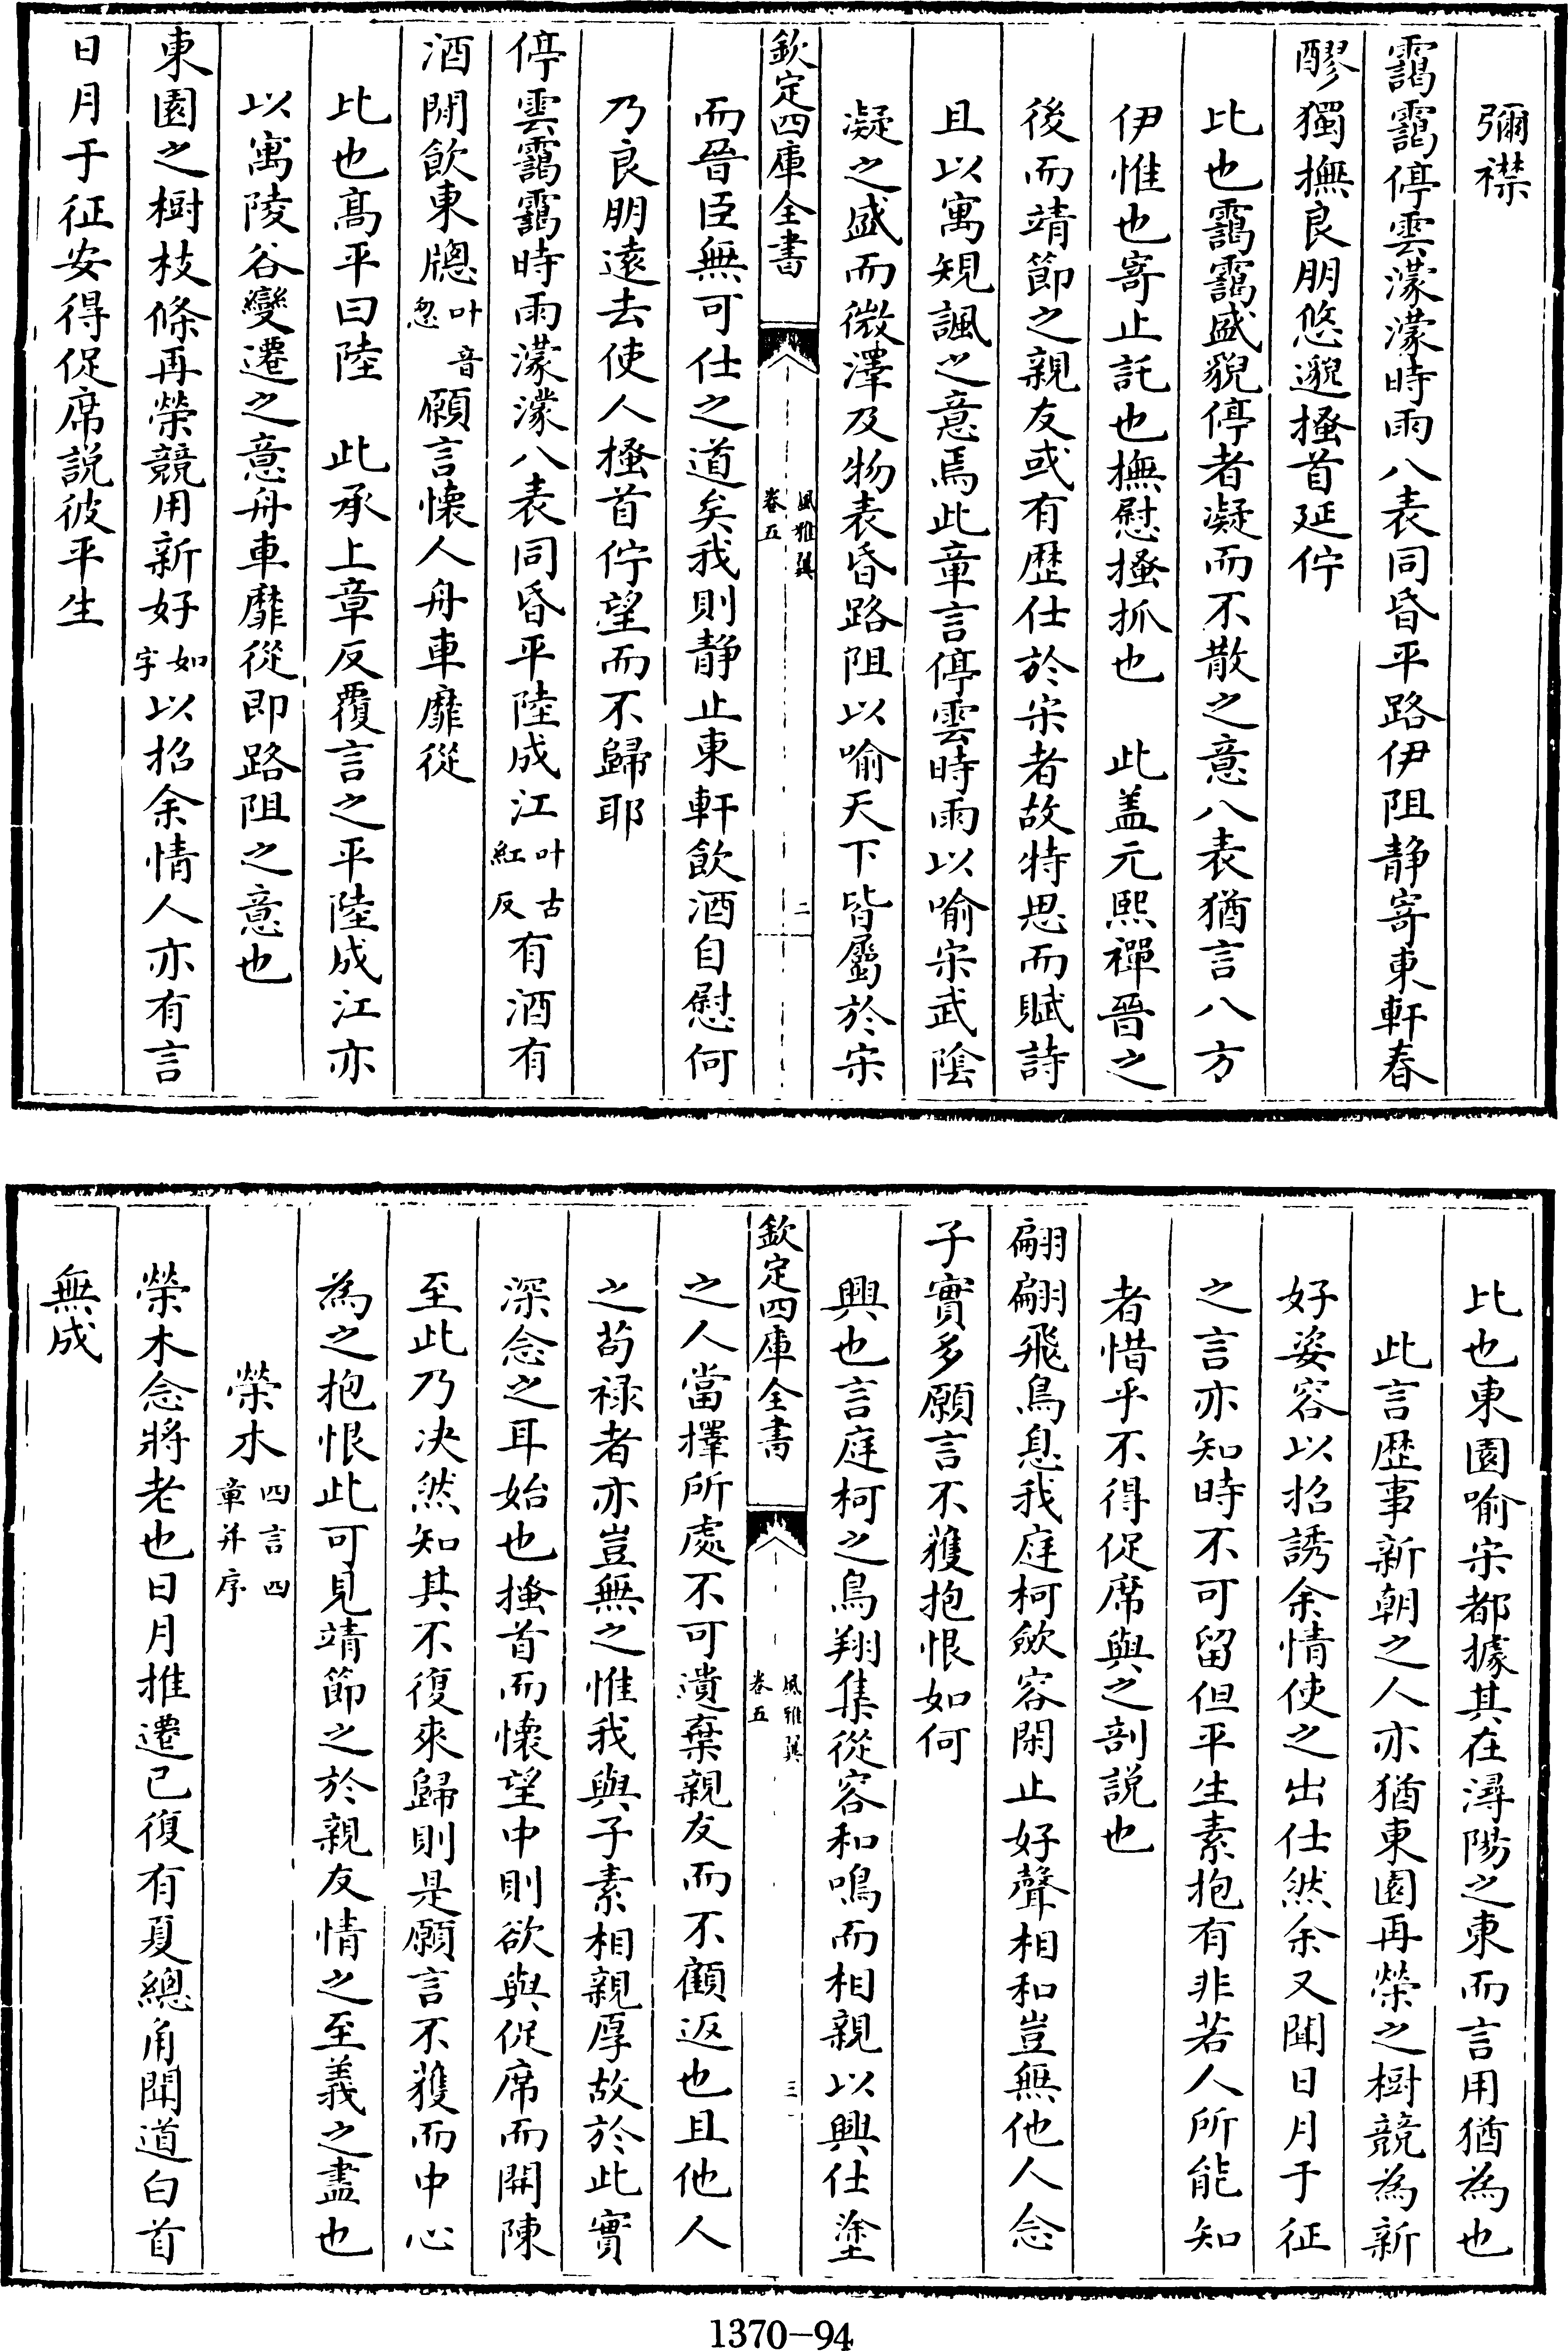 彌襟
靄靄停雲濛濛時雨八表同昏平路伊阻静寄東軒春
醪獨撫良朋悠邈搔首延佇
比也靄靄盛貌停者凝而不散之意八表猶言八方
伊惟也寄止託也撫慰搔抓也　此盖元熙禪晉之
後而靖節之親友或有歴仕於宋者故特思而賦詩
且以寓規諷之意焉此章言停雲時雨以喻宋武陰
凝之盛而微澤及物表昏路阻以喻天下皆屬於宋
欽定四庫全書
風雅翼
卷五
二
而晉臣無可仕之道矣我則静止東軒飲酒自慰何
乃良朋遠去使人搔首佇望而不歸耶
停雲靄靄時雨濛濛八表同昏平陸成江叶古紅反有酒有
酒閒飲東牕叶音怱願言懐人舟車靡從
比也髙平曰陸　此承上章反覆言之平陸成江亦
以寓陵谷變遷之意舟車靡從即路阻之意也
東園之樹枝條再榮競用新好如字以招余情人亦有言
日月于征安得促席説彼平生
比也東園喻宋都據其在潯陽之東而言用猶為也
此言歴事新朝之人亦猶東園再榮之樹競為新
好姿容以招誘余情使之出仕然余又聞日月于征
之言亦知時不可留但平生素抱有非若人所能知
者惜乎不得促席與之剖説也
翩翩飛鳥息我庭柯斂容閑止好聲相和豈無他人念
子實多願言不獲抱恨如何
興也言庭柯之鳥翔集從容和鳴而相親以興仕塗
欽定四庫全書
風雅翼
卷五
三
之人當擇所處不可遺棄親友而不顧返也且他人
之苟禄者亦豈無之惟我與子素相親厚故於此實
深念之耳始也搔首而懐望中則欲與促席而開陳
至此乃决然知其不復來歸則是願言不獲而中心
為之抱恨此可見靖節之於親友情之至義之盡也
榮木四言四章并序
榮木念將老也日月推遷已復有夏總角聞道白首
無成
1370-94